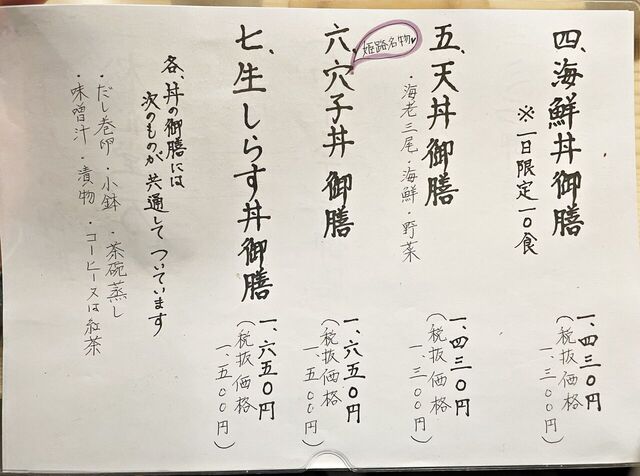 四、海鮮丼御膳
※一日限定一〇食
一、四三〇円
（税抜価格
一、三〇〇円）
五、天丼御膳
・海老三尾・海鮮・野菜
一、四三〇円
（税抜価格
一、三〇〇円）
姫路名物
六、穴子丼御膳
一、六五〇円
（税抜価格
一、五〇〇円）
七、生しらす丼御膳
一、六五〇円
（税抜価格
一、五〇〇円）
各、丼の御膳には
次のものが共通してついています
・だし巻卵・小鉢・茶碗蒸し
・味噌汁・漬物・コーヒー又は紅茶